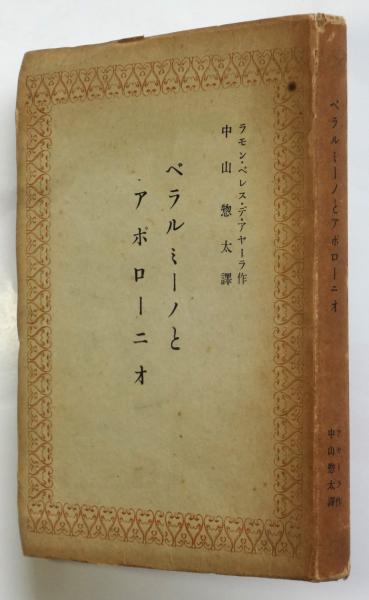 ラモン・ペレス・デ・アヤーラ作
中山惣太譯
ベラルミーノと
アポローニオ
ベラルミーノとアポローニオ
アヤーラ作
中山惣太譯